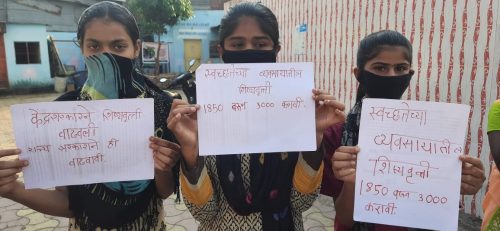 केंद्रसरकारने शिष्यवृत्ती
वाढवली
राज्य सरकारने ही
वाढवावी
स्वच्छतेच्या व्यवसायातील
शिष्यवृत्ती
1850 वरून 3000 करावी.
स्वच्छतेच्या
व्यवसायातील
शिष्यवृत्ती
1850 वरून 3000
करावी.